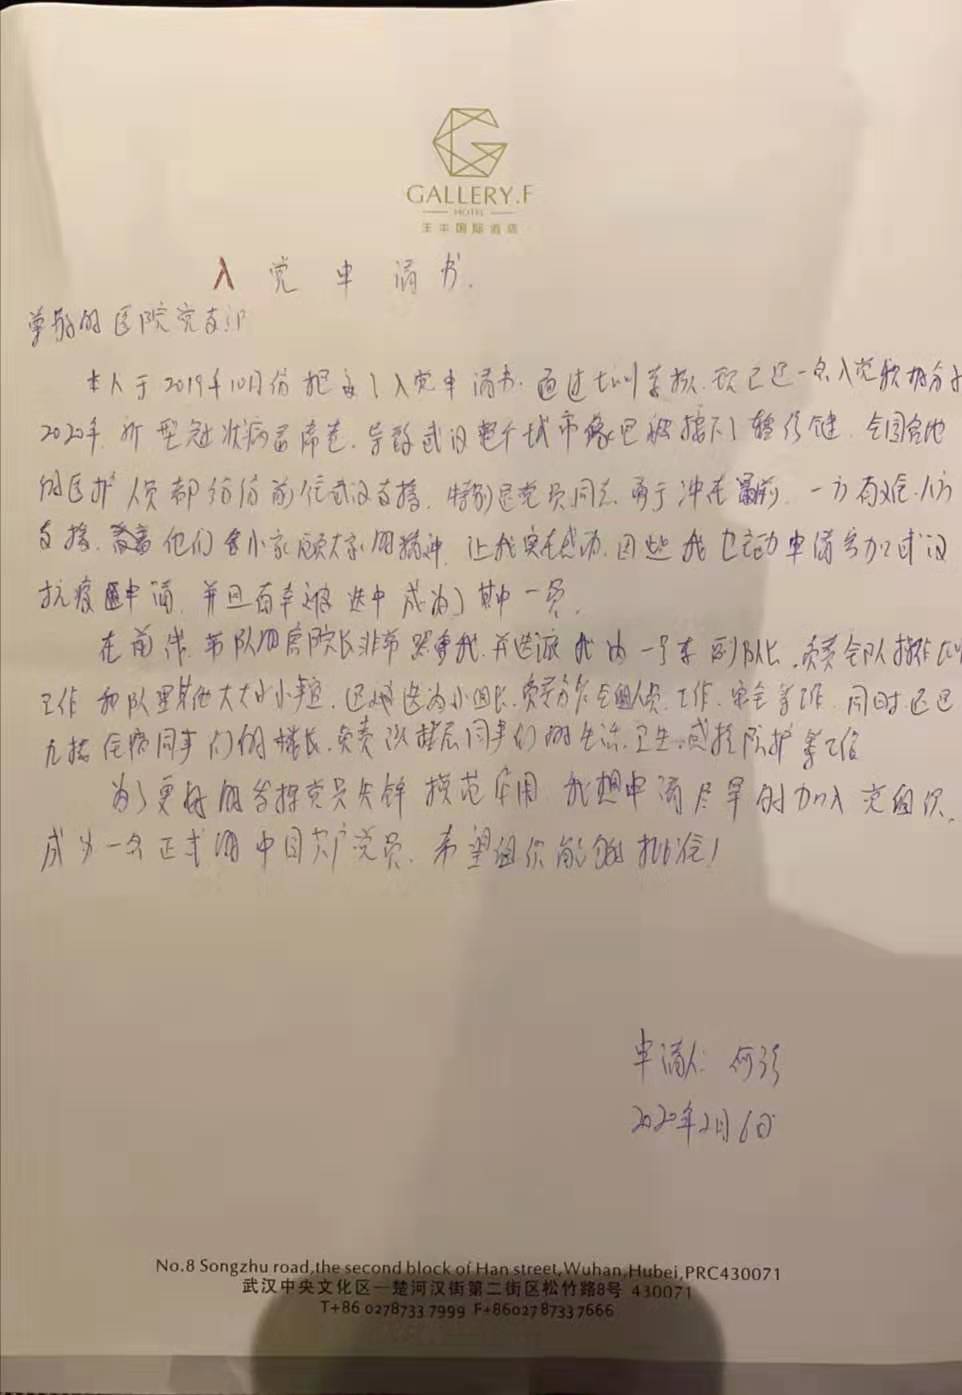 GALLERY.F
HOTEL
国际酒店
入党申请书.
尊敬的医院党支部
本人于2019年10月份提交了入党申请书.通过培训考核.现已是一名入党积极分子
2020年,新型冠状病毒席卷.导致武汉整个城市像已被按下了暂停键.全国各地
的医护人员都纷纷前往武汉支援,特别是党员同志,勇于冲在最前,一方有难.八方
支援,他们舍小家顾大家的精神,让我实在感动.因此我也主动申请参加武汉
抗疫申请,并且有幸被选中成为了其中一员.
在前线,带队的房院长非常器重我,并选派我为一号车副队长,负责全队操作培训
工作和队里其他大大小小事宜,还被选为小组长,负责分管全组人员工作、安全等工作,同时还已
为了更好的发挥党员先锋模范作用,我想申请尽早的加入党组织,
成为一名正式的中国共产党员,希望组织能够批准!
申请人:何
2020年2月6日
No.8 Songzhu road,the second block of Han street,Wuhan,Hubei,PRC430071
武汉中央文化区—楚河汉街第二街区松竹路8号 430071
T+86 02787337999 F+8602787337666